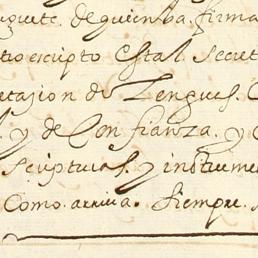 de quien ba. firma
escripto Estal. Secret
etasion de Lenguas. C
y de Confianza. y C
Scripturas. y instrume
Como arriua. Siempre.